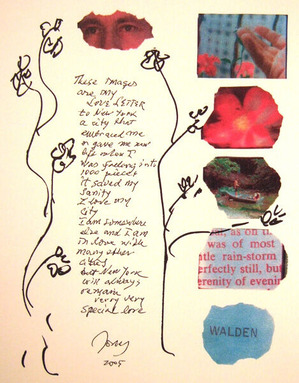 These Images
are my
LOVE LETTER
to New York
a city that
embraced me
& gave me new
life when I
was falling into
1000 pieces
it saved my
Sanity
I love my
City
I am somewhere
else and I am
in love with
many other
cities
but New York
will always
remain
verry very
special love
Tony
2005
as on
was of most
tle rain-storm
erfectly still, but
erenity of evenin
WALDEN